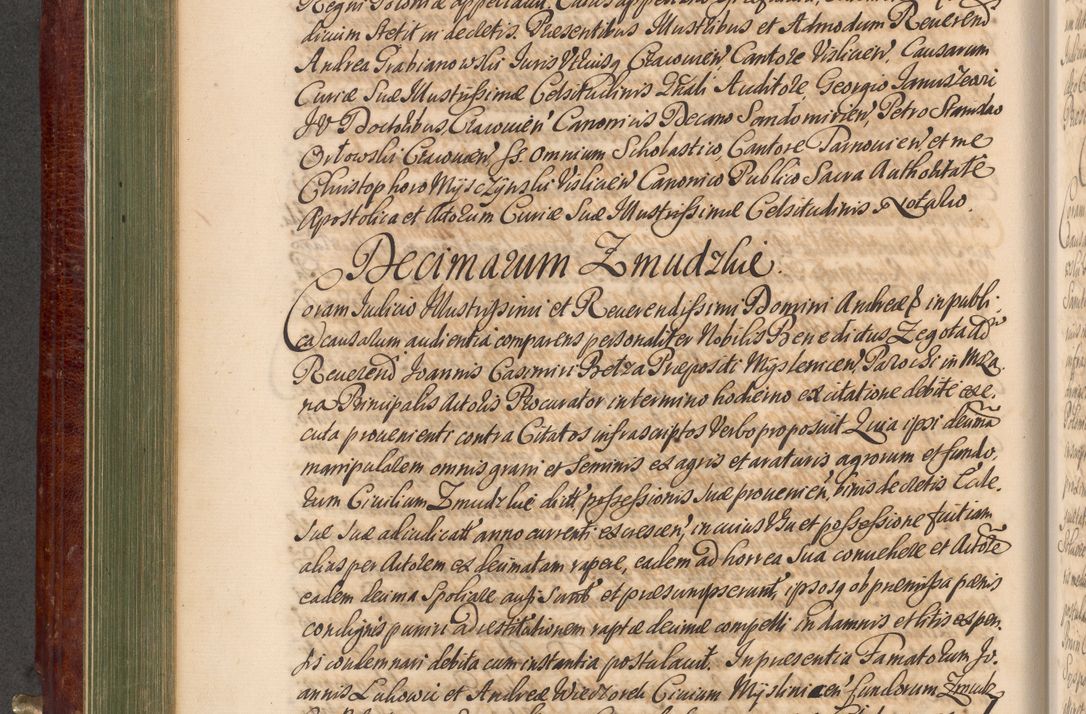 Regni Poloniæ appellavit,
dicium stetit in decretis. Præsentibus Illustribus et Admodum Reverend
Andrea Grabianowski Juris Utriusq Cracovien, Cantore Vislicien, Causarum
Curiæ Suæ Illustrissimæ Celsitudinis Auditore, Georgio Januszewi
Doctoribus, Cracovien Canonicis Decano Sandomirien, Petro Stanislao
Orłowski Cracovien, SS. Omnium Scholastico, Cantore Tarnovien, et me
Christophoro Mysczÿnski Vislicien Canonico Publico Sacra Authoritate
Apostolica et Actorum Curiæ Suæ Illustrissimæ Celsitudinis Notario.
Decimarum Zmudzkie.
Coram Iudicio Illustrissimi et Reverendissimi Domini Andreæ in publi,
ca causarum audientia comparens personaliter Nobilis Benedictus Zegota
Reverend Joannis Casimiri Betza Præpositi Myslenicen Parochi in Mza
na Principalis Actoris Procurator in termino hodierno ex citatione debite exe,
cuta provenienti contra Citatos infrascriptos Verbo proposuit Quia ipsi
manipulatem omnis grani et Seminis ex agris et araturis agrorum et fundo,
rum Civilium Zmudzkie possessionis suæ provenien, binis decretis Eccle,
suæ adiudicatt anno currenti excrescen, in cuius Usu et possessione fuit iam
alias per Actorem ex decimatam rapere, eadem ad horrea Sua convehere et Actore
eadem decima Spoliare ausi sunt et præsumpserunt, ipsosq ob præmissa pænis
condignis puniri ad restitutionem raptæ decimæ compelli in damnis et litis expen,
sis condemnari debita cum instantia postulavit. In præsentia Famatorum Jo,
annis Lukowic et Andreæ Wiedzorek Civium Myslinicen fundorum Zmudz